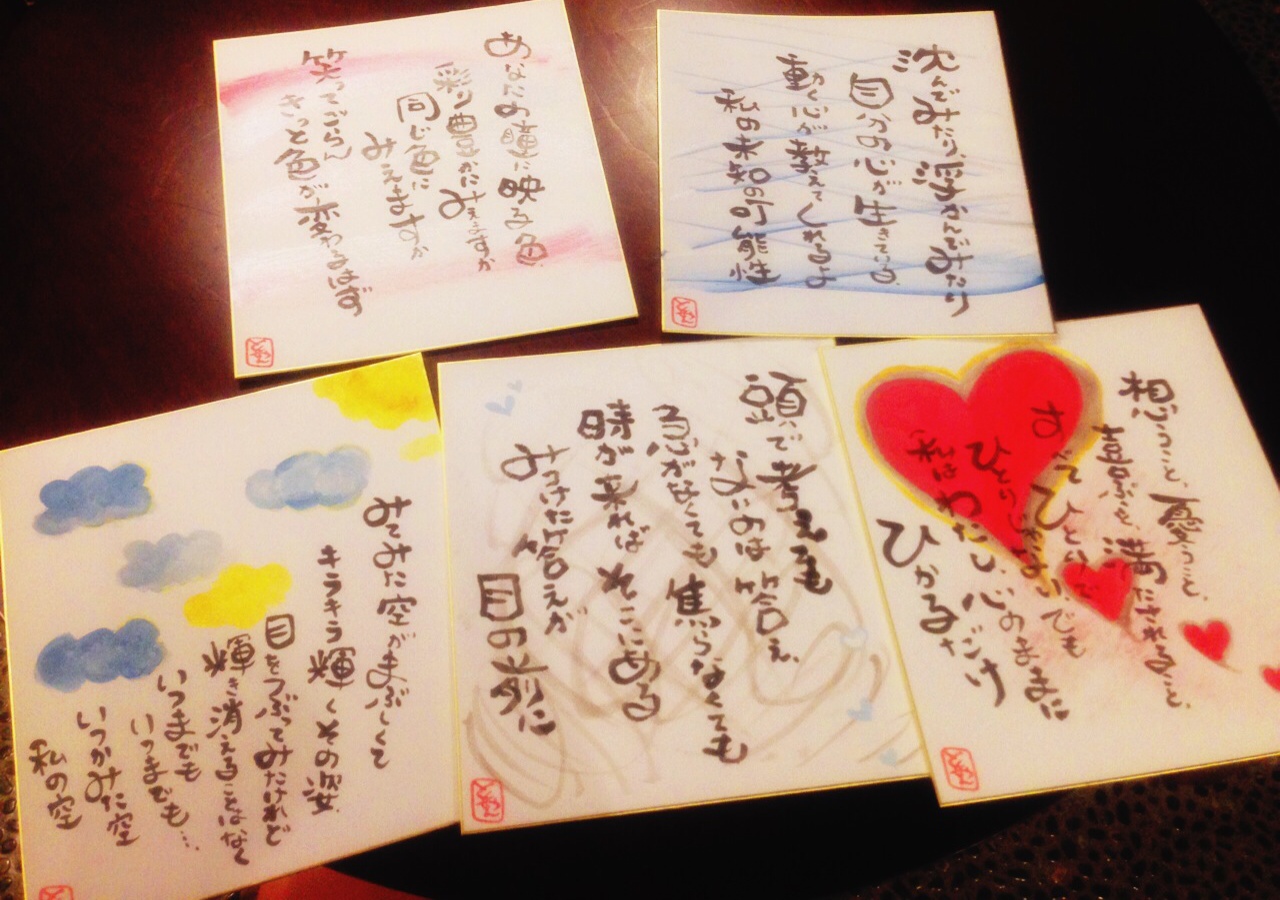 あなたの瞳に映る色
彩り豊かにみえますか
同じ色に
みえますか
笑ってごらん
きっと色が変わるはず
沈んでみたり、浮かんでみたり
自分の心が生きている。
動く心が教えてくれるよ
私の未知の可能性
みてみた空がまぶしくて
キラキラ輝くその姿
目をつぶってみたけれど
輝き消えることはなく
いつまでも
いつまでも…
いつかみた空
私の空
頭で考えても
なおは答え。
急がなくても焦らなくても
時が来ればそこにある
みつけた答えが
目の前に
想うこと、憂うこと、
喜ぶこと、満たされること、
すべてひといきで
ひとりじゃないでも
私はわたし、心のままに
ひかるだけ